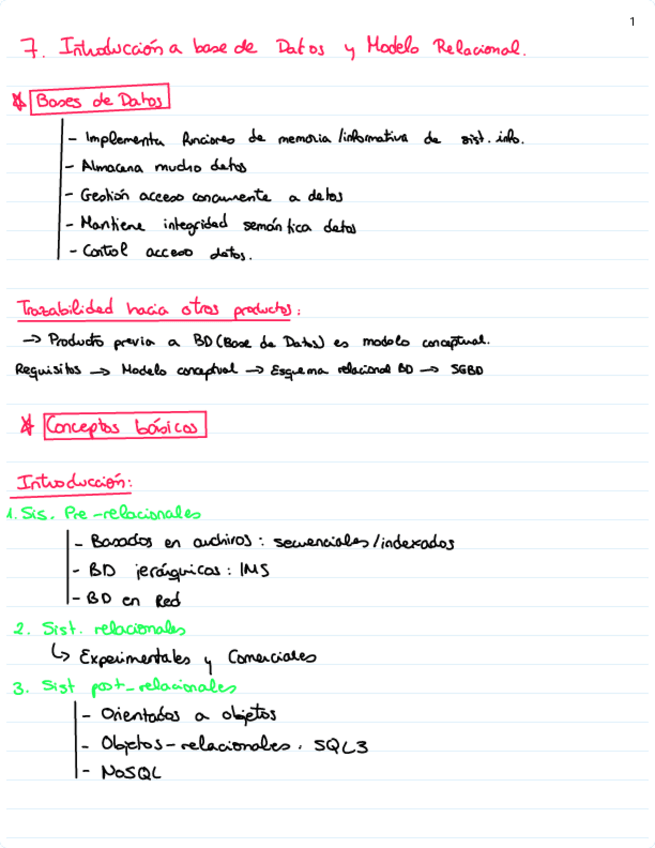 1
7. Introducción a base de Datos y Modelo Relacional.
* Bases de Datos
- Implementa funciones de memoria/informativa de sist. info.
- Almacena mucho datos
- Gestión acceso concurrente a datos
- Mantiene integridad semántica datos
- Control acceso datos.
Trazabilidad hacia otros productos:
→ Producto previa a BD (Base de Datos) es modelo conceptual.
Requisitos → Modelo conceptual → Esquema relacional BD → SGBD
* Conceptos básicos
Introducción:
1. Sis. Pre-relacionales
- Basados en archivos: secuenciales/indexados
- BD jerárquicas: IMS
- BD en Red
2. Sist. relacionales
↳ Experimentales y Comerciales
3. Sist post-relacionales
- Orientados a objetos
- Objetos-relacionales. SQL3
- NoSQL